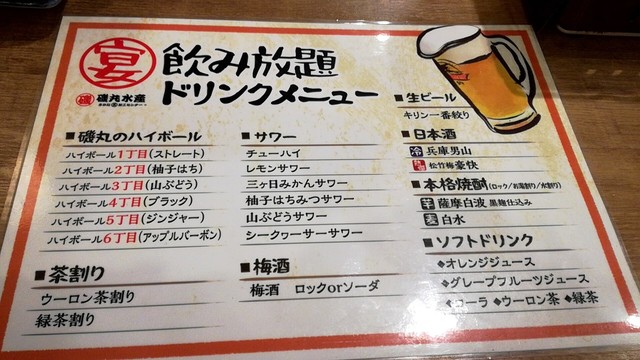 宴
飲み放題
ドリンクメニュー
磯 磯丸水産
■磯丸のハイボール
ハイボール1丁目(ストレート)
ハイボール2丁目(柚子はち)
ハイボール3丁目(山ぶどう)
ハイボール4丁目(ブラック)
ハイボール5丁目(ジンジャー)
ハイボール6丁目(アップルバーボン)
■茶割り
ウーロン茶割り
緑茶割り
■サワー
チューハイ
レモンサワー
三ヶ日みかんサワー
柚子はちみつサワー
山ぶどうサワー
シークヮーサーサワー
■梅酒
梅酒 ロックorソーダ
■生ビール
キリン一番搾り
■日本酒
冷 兵庫男山
松竹梅豪快
■本格焼酎(ロック/お湯割り/水割り)
芋 薩摩白波 黒麹仕込み
麦 白水
■ソフトドリンク
◆オレンジジュース
◆グレープフルーツジュース
◆コーラ ◆ウーロン茶 ◆緑茶